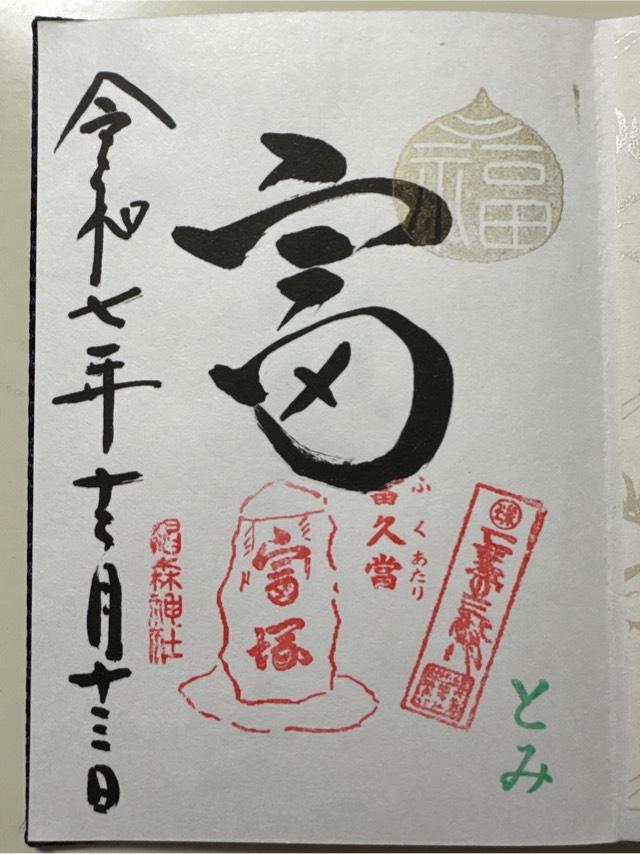 福
とみ
富
ふくあたり
富久當
富塚
椙森神社
令和七年十二月十三日